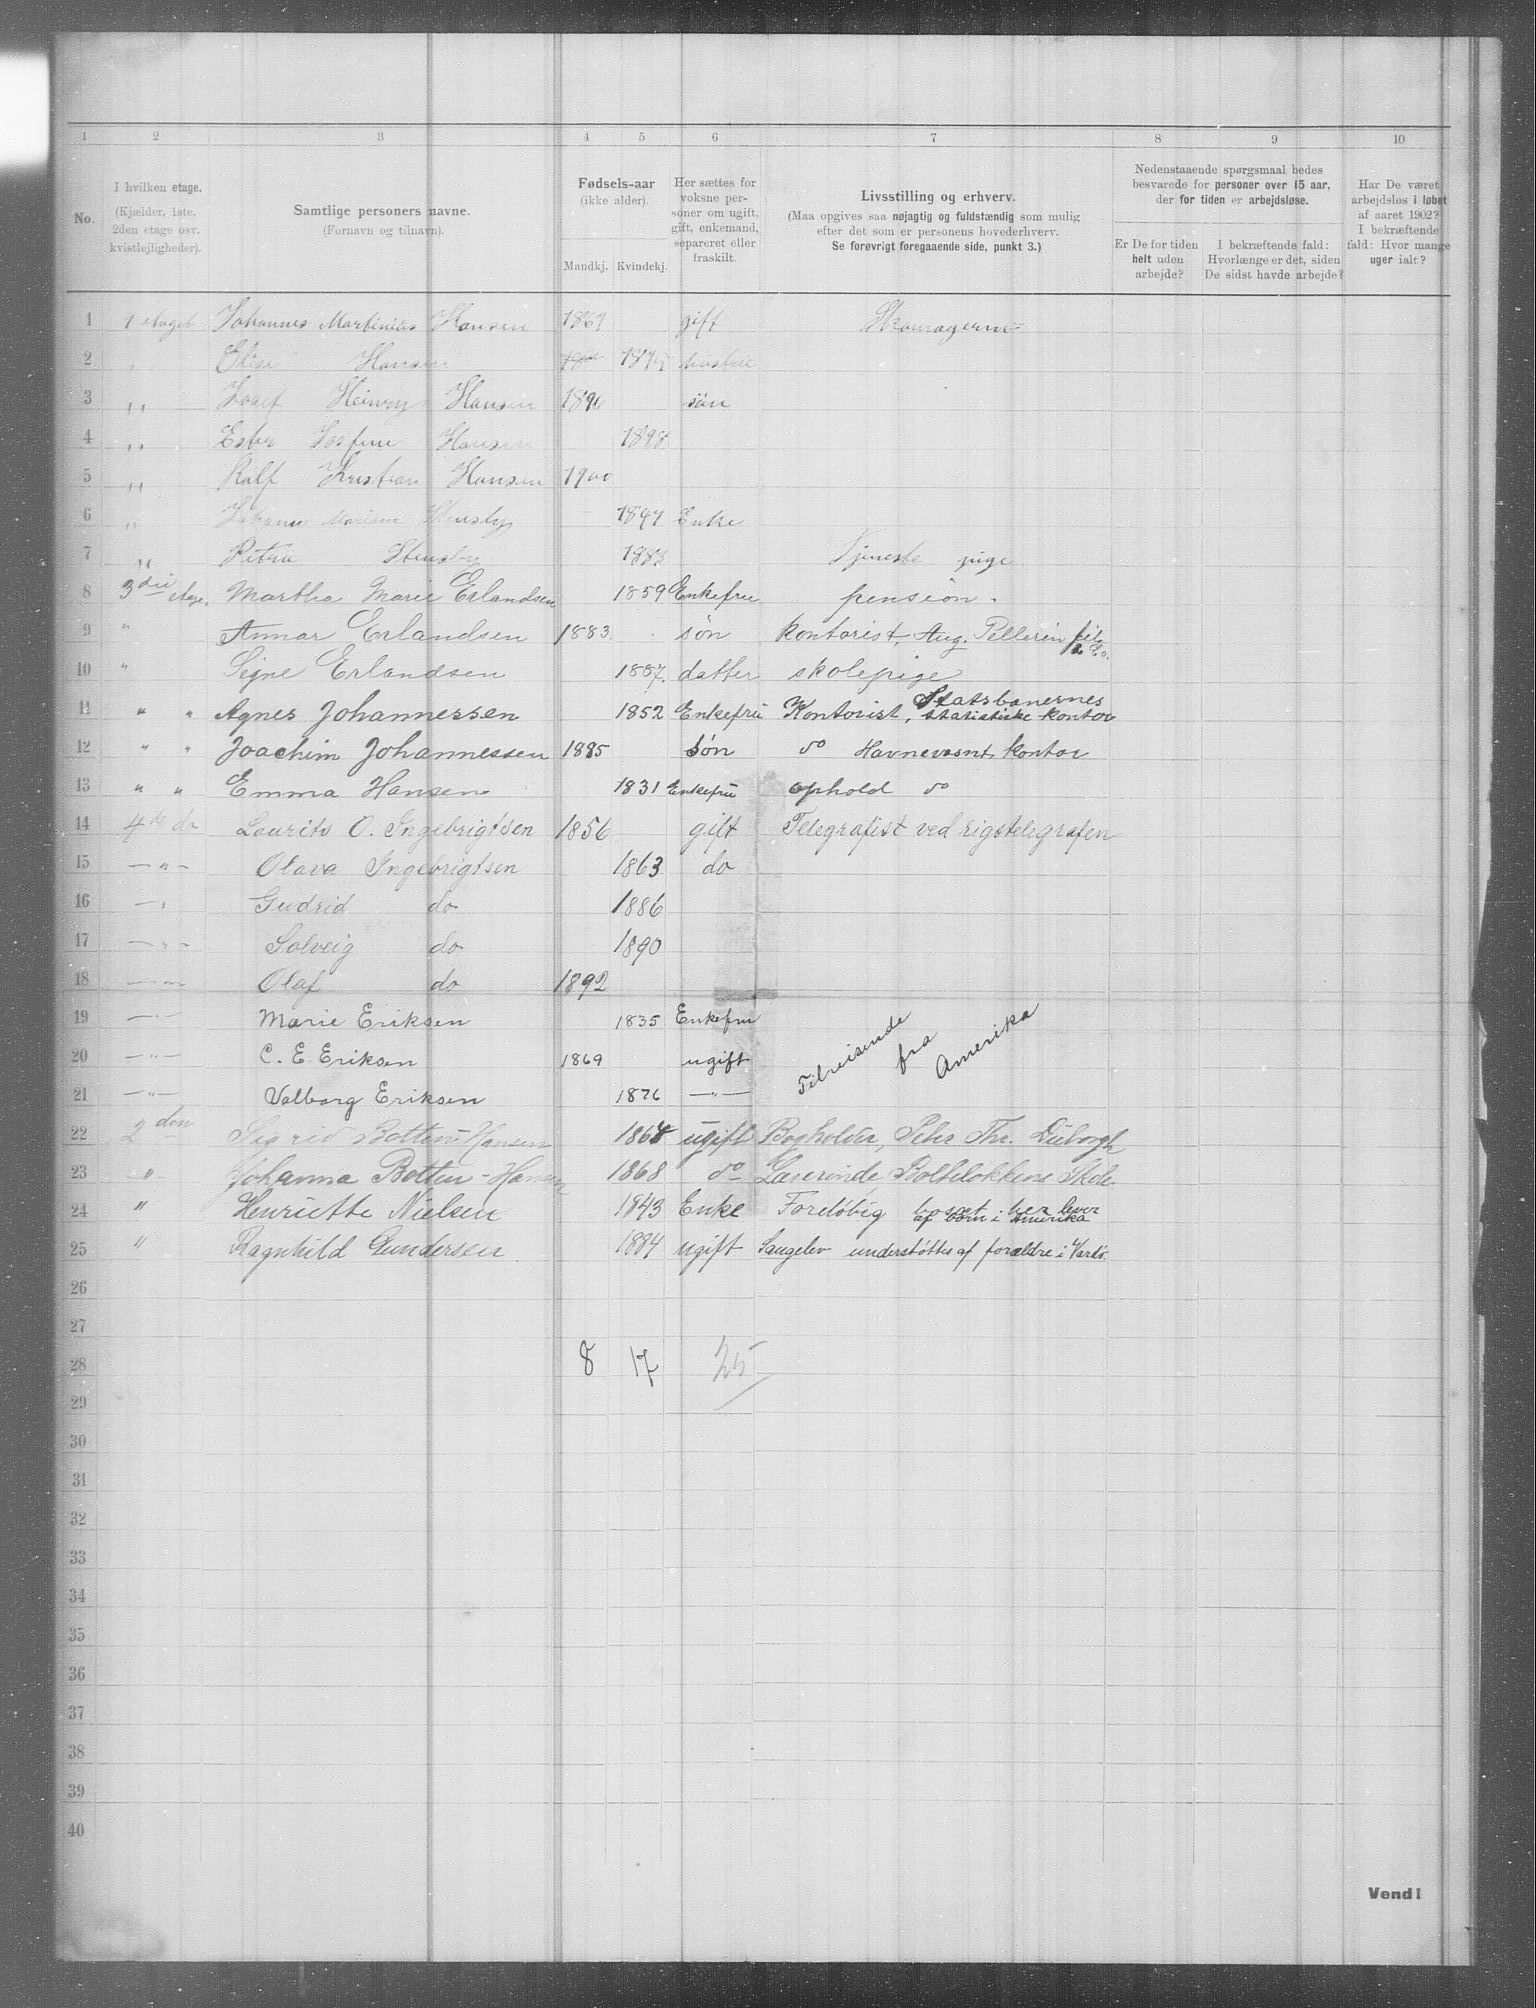 1 2 3 4 5 6 7 8 9 10
No.
I hvilken etage.
(Kjælder, 1ste,
2den etage osv.
kvistlejligheder).
Samtlige personers navne.
(Fornavn og tilnavn).
Fødsels-aar
(ikke alder).
Mandkj. Kvindekj.
Her sættes for
voksne per-
soner om ugift,
gift, enkemand,
separeret eller
fraskilt.
Livsstilling og erhverv.
(Maa opgives saa nøjagtig og fuldstændig som mulig
efter det som er personens hovederhverv.
Se forøvrigt foregaaende side, punkt 3.)
Nedenstaaende spørgsmaal bedes
besvarede for personer over 15 aar,
der for tiden er arbejdsløse.
Er De for tiden
helt uden
arbejde?
I bekræftende fald:
Hvorlænge er det, siden
De sidst havde arbejde?
Har De været
arbejdsløs i løbet
af aaret 1902?
I bekræftende
fald: Hvor mange
uger ialt?
1 1 etaget Johannes Martinius Hansen 1867 gift
2 " Elise Hansen 1875 hustru
3 " Josef Heinry Hansen 1896 søn
4 " Ester Josfine Hansen 1898
5 " Ralf Kristian Hansen 1900
6 " Johanne Mariane Stensby 1847 Enke
7 " Petra Stensby 1883 Tjeneste pige
8 3die etage. Martha Marie Erlandsen 1859 Enkefru pension.
9 " Annar Erlandsen 1883 søn kontorist, Aug. Pellerin fils & Co.
10 " Signe Erlandsen 1887. datter skolepige
11 " " Agnes Johannessen 1852 Enkefru Kontorist, Statsbanernes statistiske kontor
12 " " Joachim Johannessen 1885 søn do Havnevæsnt. kontor
13 " " Emma Hansen 1831 Enkefru ophold do
14 4de do Laurits O. Ingebrigtsen 1856 gift Telegrafist ved rigstelegrafen
15 — " — Olava Ingebrigtsen 1863 do
16 — " Gudrid do 1886
17 — " — Solveig do 1890
18 — " — Olaf do 1892
19 — " — Marie Eriksen 1835 Enkefru Tilreisende fra Amerika
20 — " — C. E. Eriksen 1869 ugift
21 — " — Valborg Eriksen 1876 — " —
22 2den Sigrid Botten-Hansen 1864 ugift Bogholder, Peter Thr. Duborgh
23 " Johanna Botten-Hansen 1868 do Lærerinde Bolteløkkens Skole
24 " Henriette Nielsen 1843 Enke Foreløbig bosat her lever af børn i Amerika
25 " Ragnhild Gundersen 1884 ugift Sangelev understøttes af forældre i Vardø.
26
27
28 8 17 25
29
30
31
32
33
34
35
36
37
38
39
40
Vend!